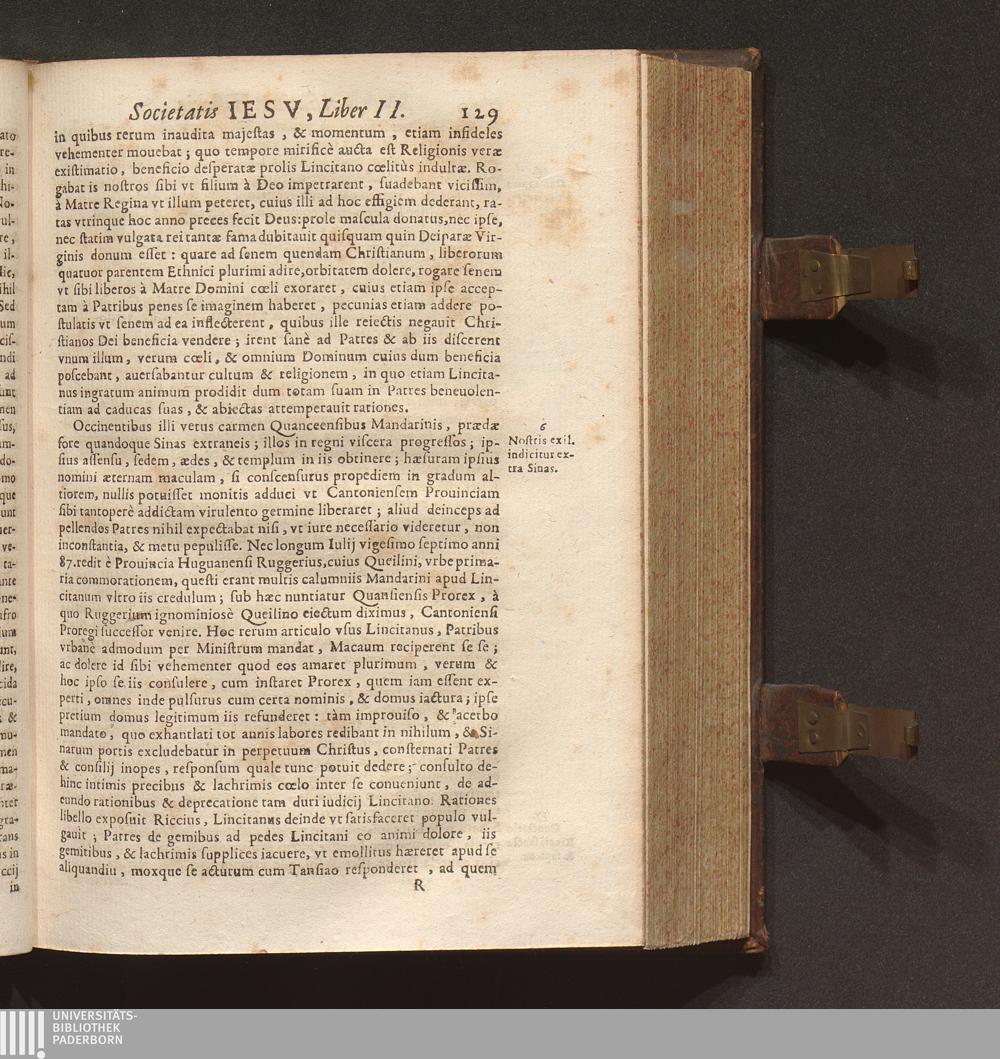 Societatis IESV, Liber II. 129
in quibus rerum inaudita majeſtas, & momentum, etiam infideles
vehementer mouebat; quo tempore mirificè aucta eſt Religionis veræ
exiſtimatio, beneficio deſperatæ prolis Lincitano cœlitùs indultæ. Ro-
gabat is noſtros ſibi vt filium à Deo impetrarent, ſuadebant viciſſim,
à Matre Regina vt illum peteret, cuius illi ad hoc effigiem dederant, ra-
tas vtrinque hoc anno preces fecit Deus: prole maſcula donatus, nec ipſe,
nec ſtatim vulgata rei tantæ fama dubitauit quiſquam quin Deiparæ Vir-
ginis donum eſſet: quare ad ſenem quendam Chriſtianum, liberorum
quatuor parentem Ethnici plurimi adire, orbitatem dolere, rogare ſenem
vt ſibi liberos à Matre Domini cœli exoraret, cuius etiam ipſe accep-
tam à Patribus penes ſe imaginem haberet, pecunias etiam addere po-
ſtulatis vt ſenem ad ea inflecterent, quibus ille reiectis negauit Chri-
ſtianos Dei beneficia vendere; irent ſanè ad Patres & ab iis diſcerent
vnum illum, verum cœli, & omnium Dominum cuius dum beneficia
poſcebant, auerſabantur cultum & religionem, in quo etiam Lincita-
nus ingratum animum prodidit dum totam ſuam in Patres beneuolen-
tiam ad caducas ſuas, & abiectas attemperauit rationes.
Occinentibus illi vetus carmen Quanceenſibus Mandarinis, prædæ
fore quandoque Sinas extraneis; illos in regni viſcera progreſſos; ip-
ſius aſſenſu, ſedem, ædes, & templum in iis obtinere; hæſuram ipſius
nomini æternam maculam, ſi conſcenſurus propediem in gradum al-
tiorem, nullis potuiſſet monitis adduci vt Cantonienſem Prouinciam
ſibi tantoperè addictam virulento germine liberaret; aliud deinceps ad
pellendos Patres nihil expectabat niſi, vt iure neceſſario videretur, non
inconſtantia, & metu pepuliſſe. Nec longum Iulij vigeſimo ſeptimo anni
87. redit è Prouincia Huguanenſi Ruggerius, cuius Queilini, vrbe prima-
ria commorationem, queſti erant multis calumniis Mandarini apud Lin-
citanum vltro iis credulum; ſub hæc nuntiatur Quanſienſis Prorex, à
quo Ruggerium ignominiosè Queilino eiectum diximus, Cantonienſi
Proregi ſucceſſor venire. Hoc rerum articulo vſus Lincitanus, Patribus
vrbanè admodum per Miniſtrum mandat, Macaum reciperent ſe ſe;
ac dolere id ſibi vehementer quod eos amaret plurimum, verum &
hoc ipſo ſe iis conſulere, cum inſtaret Prorex, quem iam eſſent ex-
perti, omnes inde pulſurus cum certa nominis, & domus iactura; ipſe
pretium domus legitimum iis refunderet: tàm improuiſo, & acerbo
mandato, quo exhantlati tot annis labores redibant in nihilum, & Si-
narum portis excludebatur in perpetuum Chriſtus, conſternati Patres
& conſilij inopes, reſponſum quale tunc potuit dedere; conſulto de-
hinc intimis precibus & lachrimis cœlo inter ſe conueniunt, de ad-
eundo rationibus & deprecatione tam duri iudicij Lincitano. Rationes
libello expoſuit Riccius, Lincitanus deinde vt ſatisfaceret populo vul-
gauit; Patres de gemibus ad pedes Lincitani eo animi dolore, iis
gemitibus, & lachrimis ſupplices iacuere, vt emollitus hæreret apud ſe
aliquandiu, moxque ſe acturum cum Tanſiao reſponderet, ad quem
R
6
Noſtris exil.
indicitur ex-
tra Sinas.
UNIVERSITÄTS-
BIBLIOTHEK
PADERBORN